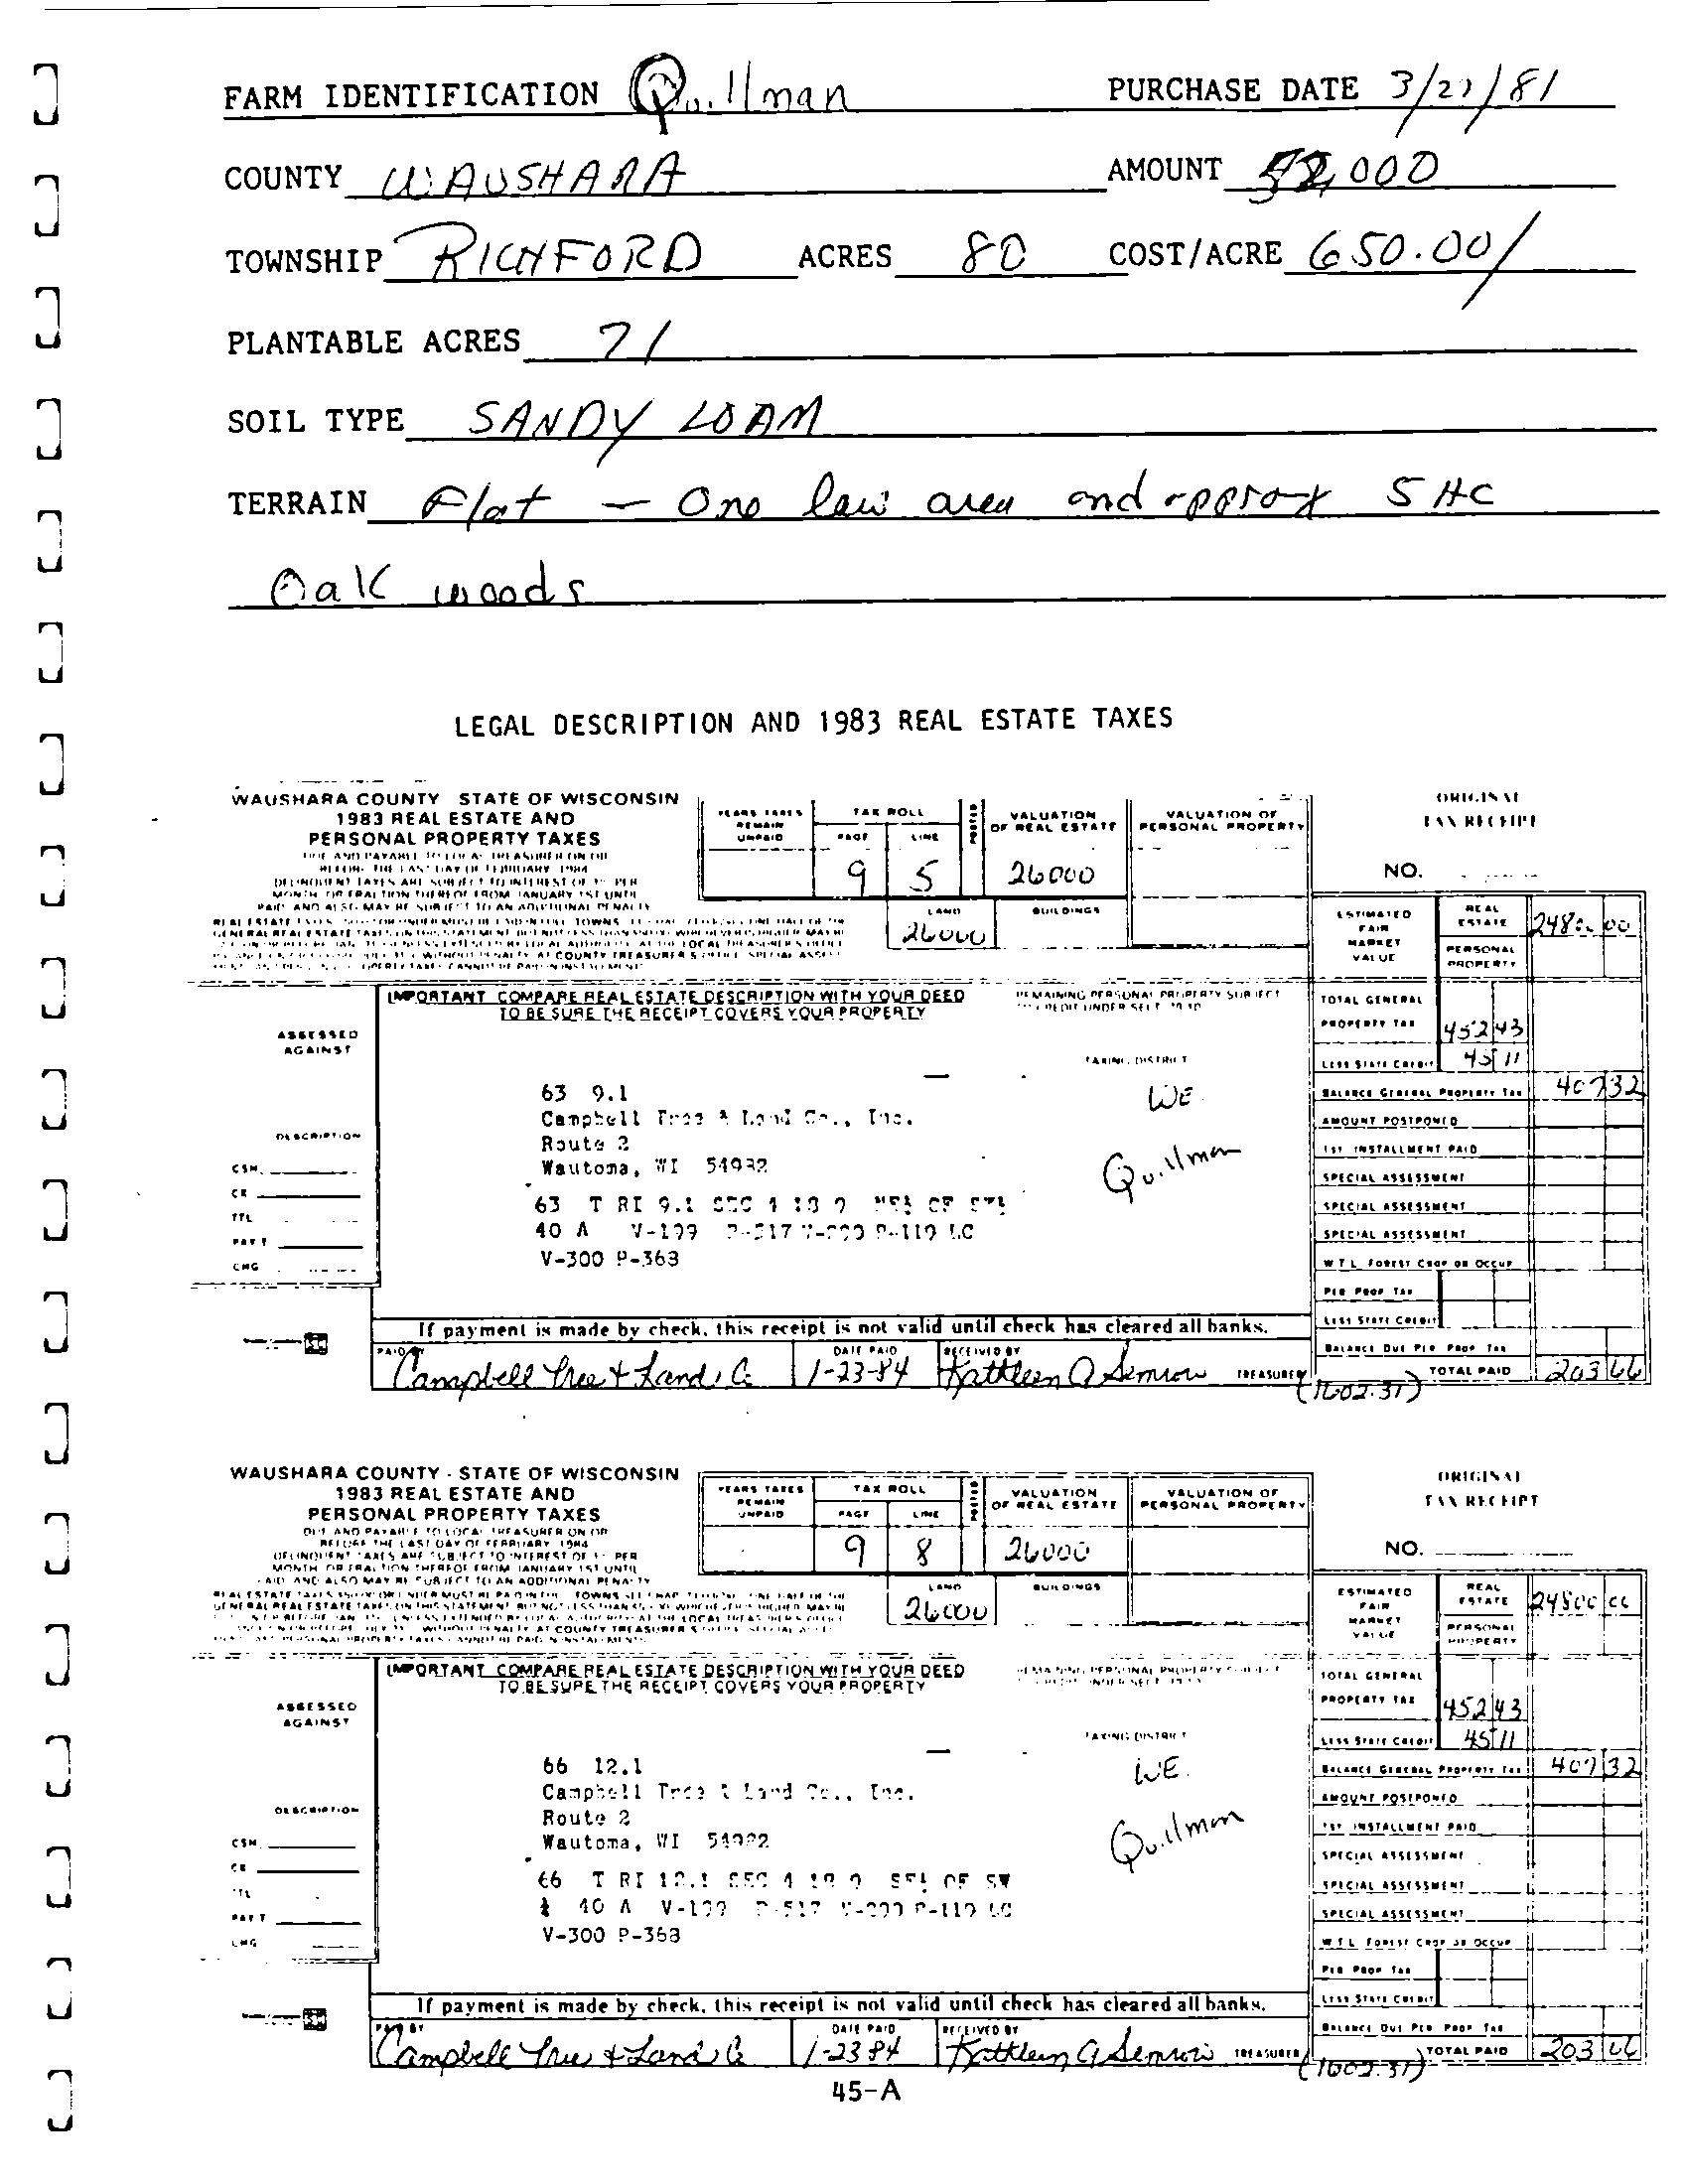 FARM IDENTIFICATION Quillman PURCHASE DATE 3/27/81
COUNTY WAUSHARA AMOUNT 52,000
TOWNSHIP RICHFORD ACRES 80 COST/ACRE 650.00/
PLANTABLE ACRES 71
SOIL TYPE SANDY LOAM
TERRAIN Flat - One low area and approx 5 AC
Oak woods
LEGAL DESCRIPTION AND 1983 REAL ESTATE TAXES
WAUSHARA COUNTY STATE OF WISCONSIN
1983 REAL ESTATE AND
PERSONAL PROPERTY TAXES
YEARS TAXES REMAIN UNPAID
TAX ROLL
PAGE LINE
POSTED
VALUATION OF REAL ESTATE
VALUATION OF PERSONAL PROPERTY
9 5 26000
LAND BUILDINGS
26000
ORIGINAL
TAX RECEIPT
NO.
ESTIMATED FAIR MARKET VALUE
REAL ESTATE 24800 00
PERSONAL PROPERTY
IMPORTANT COMPARE REAL ESTATE DESCRIPTION WITH YOUR DEED
TO BE SURE THE RECEIPT COVERS YOUR PROPERTY
ASSESSED
AGAINST
TAXING DISTRICT
63 9.1
Campbell Tree & Land Co., Inc.
Route 2
Wautoma, WI 54982
WE
Quillman
DESCRIPTION
CSM.
CK
TTL
PAY'T
CHG
63 T RI 9.1 SEC 4 18 9
40 A V-199 P-517 P-119 LC
V-300 P-368
TOTAL GENERAL
PROPERTY TAX 452 43
LESS STATE CREDIT 45 11
BALANCE GENERAL PROPERTY TAX 407 32
AMOUNT POSTPONED
1ST INSTALLMENT PAID
SPECIAL ASSESSMENT
SPECIAL ASSESSMENT
SPECIAL ASSESSMENT
W.T.L. FOREST CROP OR OCCUP
PER PROP TAX
LESS STATE CREDIT
BALANCE DUE PER PROP TAX
TOTAL PAID 203 66
If payment is made by check, this receipt is not valid until check has cleared all banks.
PAID BY DATE PAID RECEIVED BY
Campbell Tree & Land Co 1-23-84 Kathleen A Semrow TREASURER
(1602.37)
WAUSHARA COUNTY - STATE OF WISCONSIN
1983 REAL ESTATE AND
PERSONAL PROPERTY TAXES
DUE AND PAYABLE TO LOCAL TREASURER ON OR
BEFORE THE LAST DAY OF FEBRUARY 1984
YEARS TAXES REMAIN UNPAID
TAX ROLL
PAGE LINE
POSTED
VALUATION OF REAL ESTATE
VALUATION OF PERSONAL PROPERTY
9 8 26000
LAND BUILDINGS
26000
ORIGINAL
TAX RECEIPT
NO.
ESTIMATED FAIR MARKET VALUE
REAL ESTATE 24800
PERSONAL PROPERTY
IMPORTANT COMPARE REAL ESTATE DESCRIPTION WITH YOUR DEED
TO BE SURE THE RECEIPT COVERS YOUR PROPERTY
ASSESSED
AGAINST
TAXING DISTRICT
66 12.1
Campbell Tree & Land Co., Inc.
Route 2
Wautoma, WI 54982
WE.
Quillman
DESCRIPTION
CSM.
CK
TTL
PAY'T
CHG
66 T RI 12.1 SEC 4 18 9 OF SW
¼ 40 A V-199 P-517 P-119 LC
V-300 P-368
TOTAL GENERAL
PROPERTY TAX 452 43
LESS STATE CREDIT 45 11
BALANCE GENERAL PROPERTY TAX 407 32
AMOUNT POSTPONED
1ST INSTALLMENT PAID
SPECIAL ASSESSMENT
SPECIAL ASSESSMENT
SPECIAL ASSESSMENT
W.T.L. FOREST CROP OR OCCUP
PER PROP TAX
LESS STATE CREDIT
BALANCE DUE PER PROP TAX
TOTAL PAID 203 66
If payment is made by check, this receipt is not valid until check has cleared all banks.
PAID BY DATE PAID RECEIVED BY
Campbell Tree & Land Co 1-23 84 Kathleen A Semrow TREASURER
(1602.37)
45-A